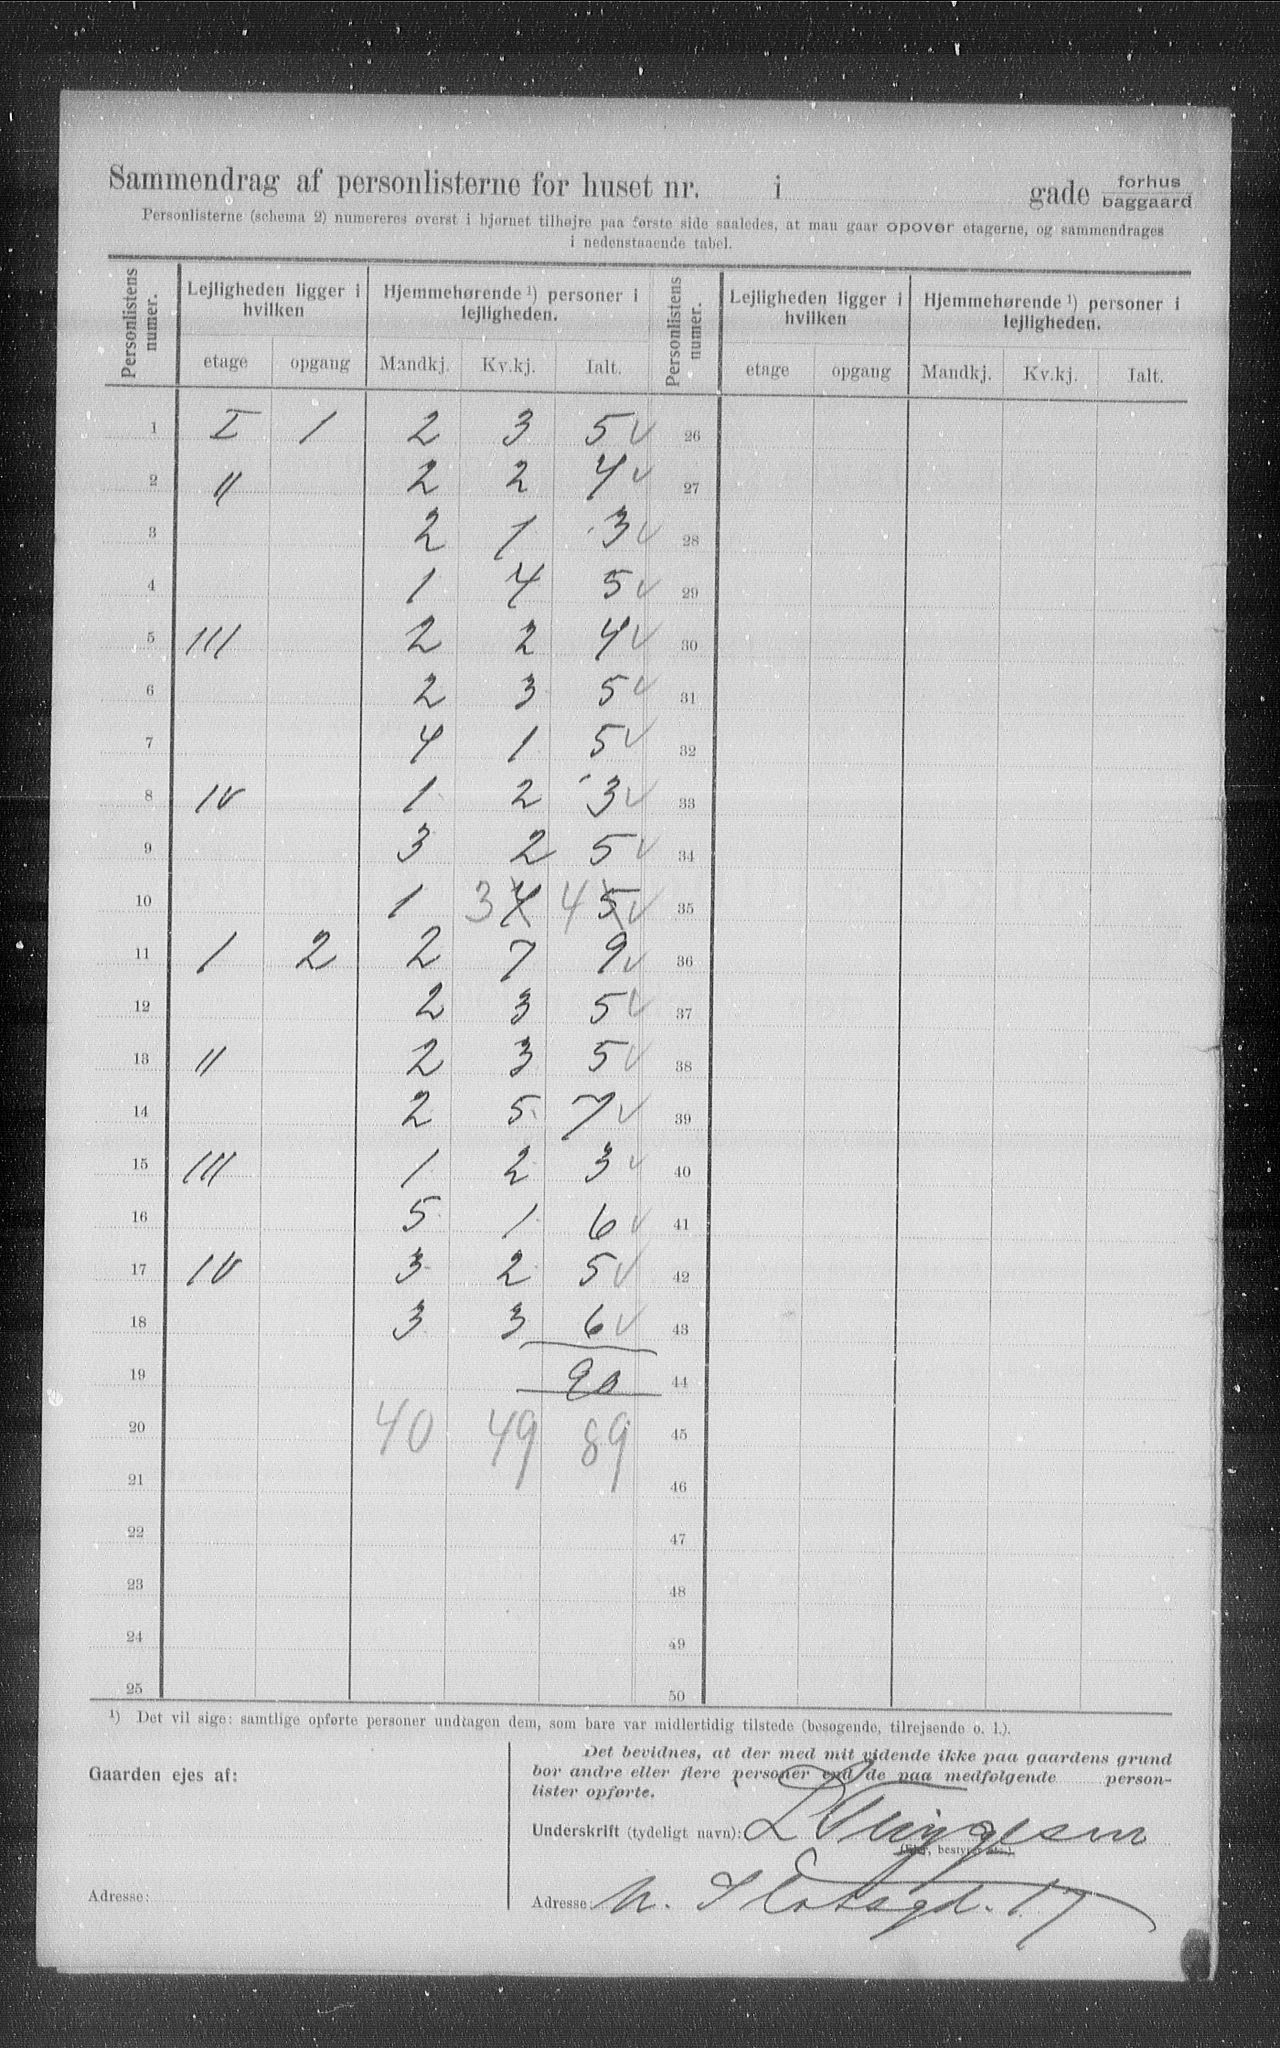 Sammendrag af personlisterne for huset nr. i gade forhus
baggaard
Personlisterne (schema 2) numereres øverst i hjørnet tilhøjre paa første side saaledes, at man gaar opover etagerne, og sammendrages
i nedenstaaende tabel.
Personlistens numer. Lejligheden ligger i hvilken Hjemmehørende ¹) personer i lejligheden. Personlistens numer. Lejligheden ligger i hvilken Hjemmehørende ¹) personer i lejligheden.
etage opgang Mandkj. Kv.kj. Ialt. etage opgang Mandkj. Kv.kj. Ialt.
1 I 1 2 3 5 ✓ 26
2 " 2 2 4 ✓ 27
3 2 1 3 ✓ 28
4 1 4 5 ✓ 29
5 III 2 2 4 ✓ 30
6 2 3 5 ✓ 31
7 4 1 5 ✓ 32
8 IV 1 2 3 ✓ 33
9 3 2 5 ✓ 34
10 1 3 4 4 5 ✓ 35
11 1 2 2 7 9 ✓ 36
12 2 3 5 ✓ 37
13 " 2 3 5 ✓ 38
14 2 5 7 ✓ 39
15 III 1 2 3 ✓ 40
16 5 1 6 ✓ 41
17 IV 3 2 5 ✓ 42
18 3 3 6 ✓ 43
19 90 44
20 40 49 89 45
21 46
22 47
23 48
24 49
25 50
¹) Det vil sige: samtlige opførte personer undtagen dem, som bare var midlertidig tilstede (besøgende, tilrejsende o. l.).
Gaarden ejes af:
Adresse:
Det bevidnes, at der med mit vidende ikke paa gaardens grund
bor andre eller flere personer end de paa medfølgende person-
lister opførte.
Underskrift (tydeligt navn):
(Ejer, bestyrer etc.)
Adresse: N. Slotsgd. 17